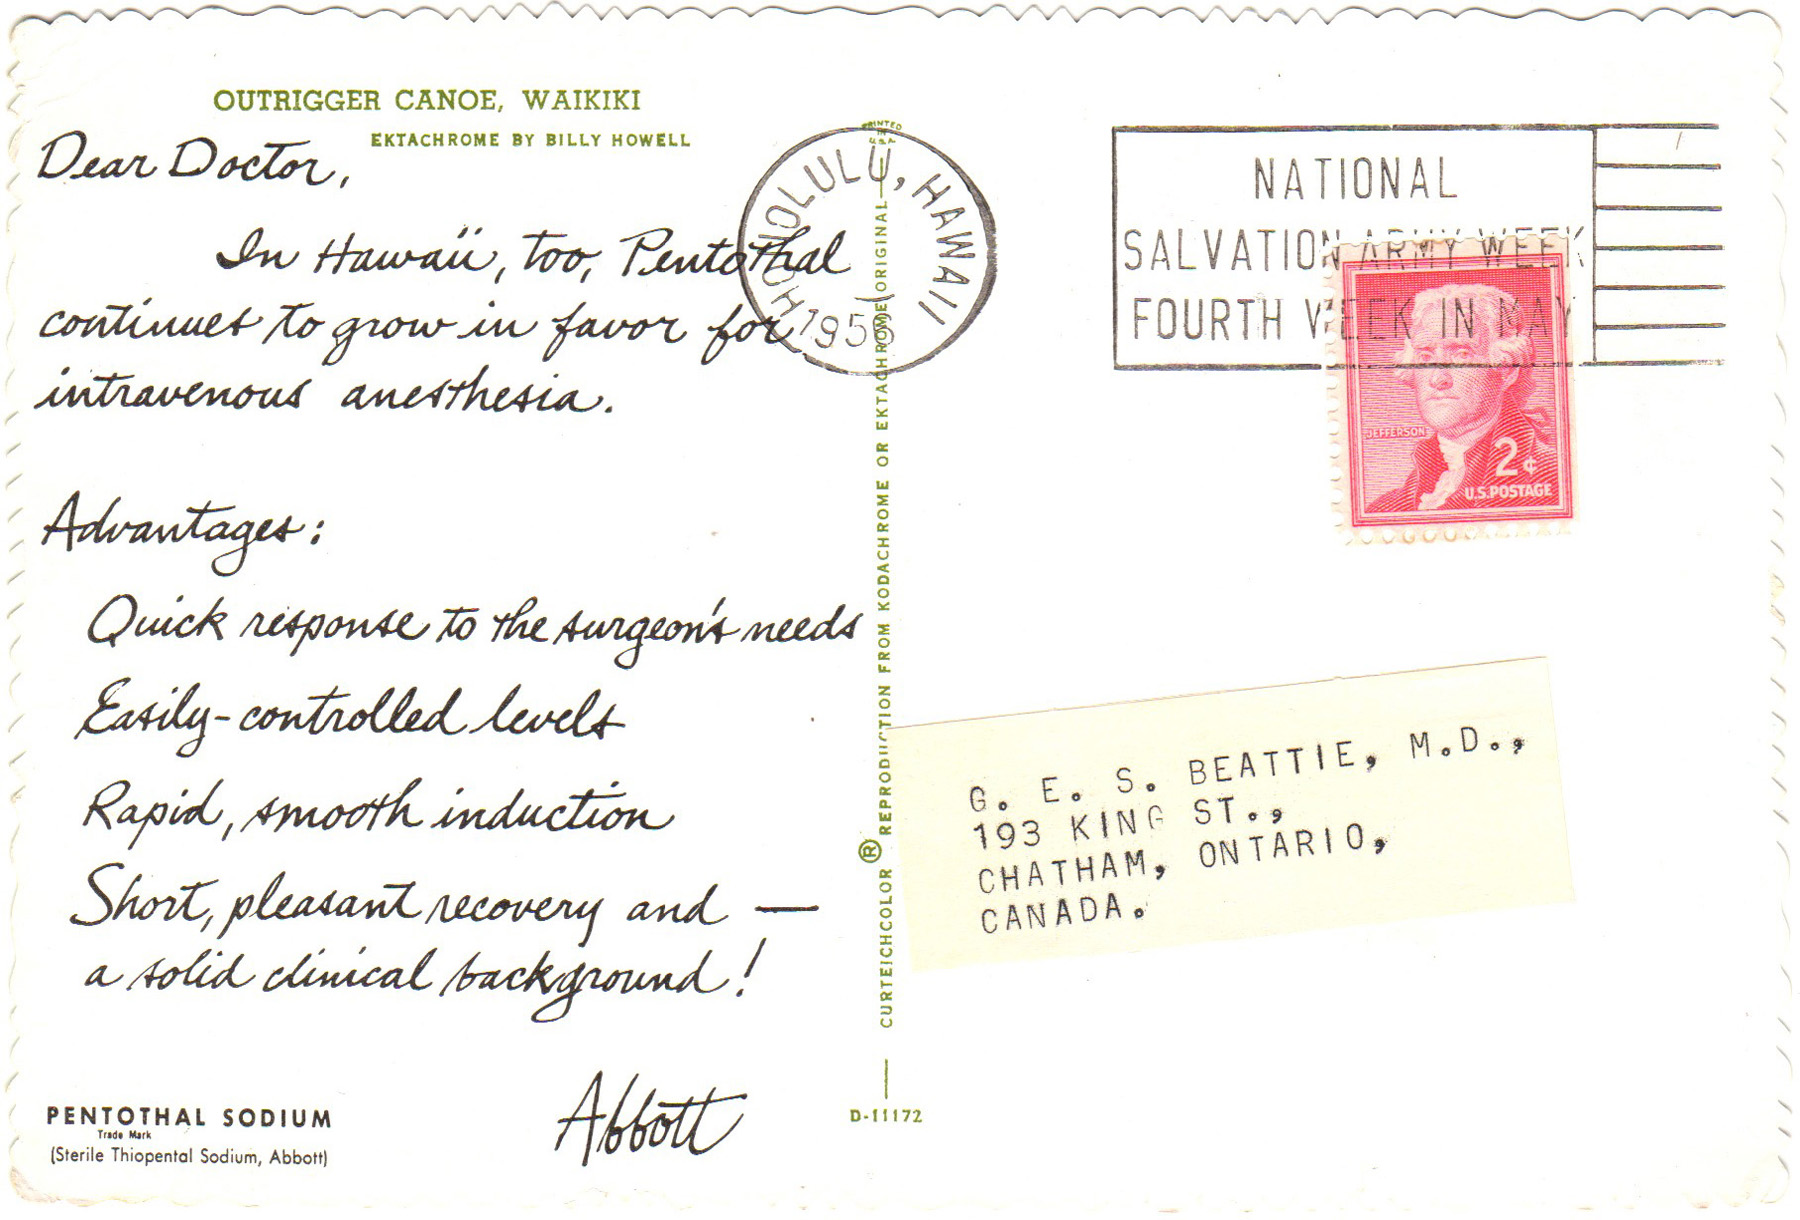 OUTRIGGER CANOE, WAIKIKI
EKTACHROME BY BILLY HOWELL
Dear Doctor,
In Hawaii, too, Pentothal
continues to grow in favor for
intravenous anesthesia.
Advantages:
Quick response to the surgeon's needs
Easily-controlled levels
Rapid, smooth induction
Short, pleasant recovery and —
a solid clinical background!
Abbott
PENTOTHAL SODIUM
Trade Mark
(Sterile Thiopental Sodium, Abbott)
PRINTED
IN
U.S.A.
CURTEICHCOLOR ® REPRODUCTION FROM KODACHROME OR EKTACHROME ORIGINAL
D-11172
HONOLULU, HAWAII
1956
NATIONAL
SALVATION ARMY WEEK
FOURTH WEEK IN MAY
JEFFERSON
2¢
U.S. POSTAGE
G. E. S. BEATTIE, M.D.,
193 KING ST.,
CHATHAM, ONTARIO,
CANADA.